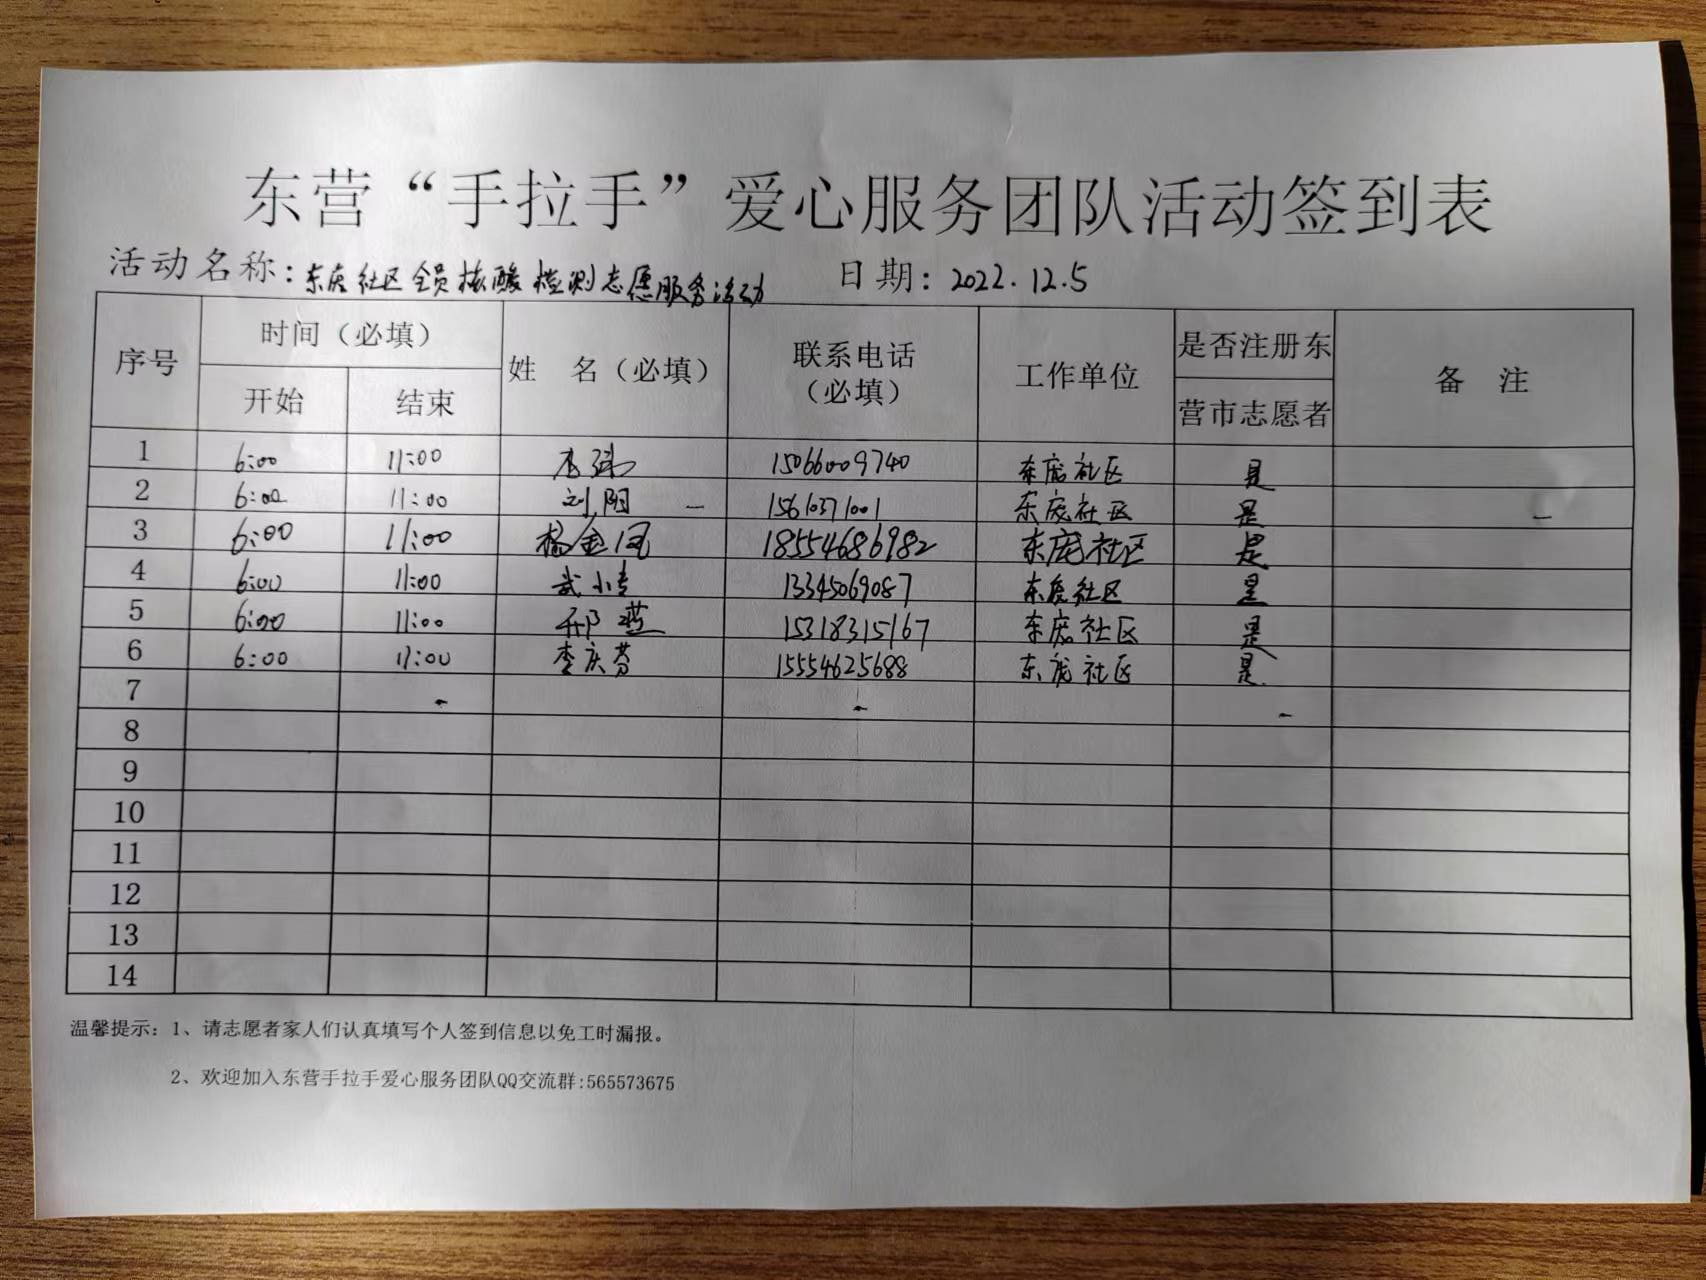 东营“手拉手”爱心服务团队活动签到表
活动名称：东庞社区全员核酸检测志愿服务活动 日期：2022.12.5
序号 时间（必填） 姓 名（必填） 联系电话（必填） 工作单位 是否注册东营市志愿者 备 注
开始 结束
1 6:00 11:00 15066009740 东庞社区 是
2 6:00 11:00 刘阳 15610371001 东庞社区 是
3 6:00 11:00 杨金凤 18554686982 东庞社区 是
4 6:00 11:00 武小 13345069087 东庞社区 是
5 6:00 11:00 邢燕 15318315167 东庞社区 是
6 6:00 11:00 李庆芬 15554625688 东庞社区 是
7
8
9
10
11
12
13
14
温馨提示：1、请志愿者家人们认真填写个人签到信息以免工时漏报。
2、欢迎加入东营手拉手爱心服务团队QQ交流群:565573675